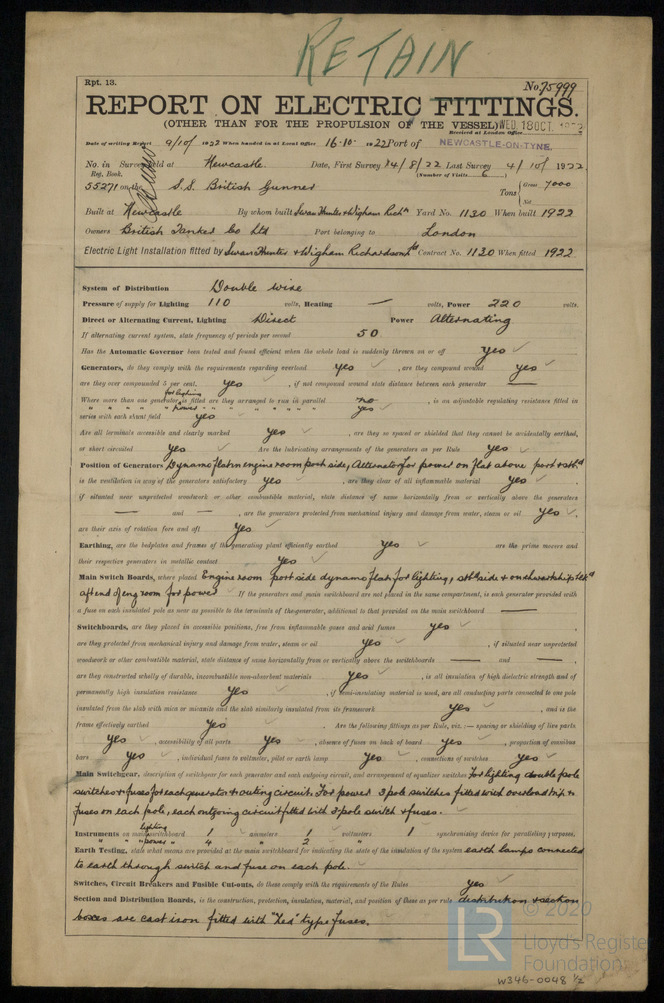 RETAIN
Rpt. 13.
No. 75999
REPORT ON ELECTRIC FITTINGS.
(OTHER THAN FOR THE PROPULSION OF THE VESSEL)
WED. 18 OCT. 1922
Received at London Office
Date of writing Report 9/10/1922 When handed in at Local Office 16-10-1922 Port of NEWCASTLE-ON-TYNE.
No. in Survey held at Newcastle. Date, First Survey 14/8/22 Last Survey 4/10/1922
Reg. Book. (Number of Visits 6)
55271 on the S.S. British Gunner Tons { Gross 7000
Net
Built at Newcastle By whom built Swan Hunter & Wigham Richn Yard No. 1130 When built 1922
Owners British Tanker Co Ltd Port belonging to London
Electric Light Installation fitted by Swan Hunter & Wigham Richardson Ltd Contract No. 1130 When fitted 1922
System of Distribution Double wire
Pressure of supply for Lighting 110 volts, Heating — volts, Power 220 volts.
Direct or Alternating Current, Lighting Direct Power Alternating
If alternating current system, state frequency of periods per second 50
Has the Automatic Governor been tested and found efficient when the whole load is suddenly thrown on or off yes
Generators, do they comply with the requirements regarding overload yes, are they compound wound yes
are they over compounded 5 per cent. yes, if not compound wound state distance between each generator —
for lighting
Where more than one generator is fitted are they arranged to run in parallel no, is an adjustable regulating resistance fitted in
" " " " power " " " " " " " yes
series with each shunt field yes
Are all terminals accessible and clearly marked yes, are they so spaced or shielded that they cannot be accidentally earthed,
or short circuited yes Are the lubricating arrangements of the generators as per Rule yes
Position of Generators Dynamo flat in engine room port side, Alternator for power on flat above port & stbd
is the ventilation in way of the generators satisfactory yes, are they clear of all inflammable material yes,
if situated near unprotected woodwork or other combustible material, state distance of same horizontally from or vertically above the generators
— and —, are the generators protected from mechanical injury and damage from water, steam or oil yes,
are their axis of rotation fore and aft yes
Earthing, are the bedplates and frames of the generating plant efficiently earthed yes are the prime movers and
their respective generators in metallic contact yes
Main Switch Boards, where placed Engine room port side dynamo flat for lighting, stbd side & on thwartship bkhd
aft end of eng room for power If the generators and main switchboard are not placed in the same compartment, is each generator provided with
a fuse on each insulated pole as near as possible to the terminals of the generator, additional to that provided on the main switchboard —
Switchboards, are they placed in accessible positions, free from inflammable gases and acid fumes yes,
are they protected from mechanical injury and damage from water, steam or oil yes, if situated near unprotected
woodwork or other combustible material, state distance of same horizontally from or vertically above the switchboards — and —,
are they constructed wholly of durable, incombustible non-absorbent materials yes, is all insulation of high dielectric strength and of
permanently high insulation resistance yes, if semi-insulating material is used, are all conducting parts connected to one pole
insulated from the slab with mica or micanite and the slab similarly insulated from its framework yes, and is the
frame effectively earthed yes. Are the following fittings as per Rule, viz.:— spacing or shielding of live parts
yes, accessibility of all parts yes, absence of fuses on back of board yes, proportion of omnibus
bars yes, individual fuses to voltmeter, pilot or earth lamp yes, connections of switches yes
Main Switchgear, description of switchgear for each generator and each outgoing circuit, and arrangement of equalizer switches for lighting double pole
switches & fuses for each generator & outing circuit. For power 3 pole switches fitted with overload trip &
fuses on each pole, each outgoing circuit fitted with 3 pole switch & fuses.
lighting
Instruments on main switchboard 1 ammeters 1 voltmeters 1 synchronizing device for paralleling purposes.
" " power " 4 " 2 "
Earth Testing, state what means are provided at the main switchboard for indicating the state of the insulation of the system earth lamps connected
to earth through switch and fuse on each pole.
Switches, Circuit Breakers and Fusible Cut-outs, do these comply with the requirements of the Rules yes
Section and Distribution Boards, is the construction, protection, insulation, material, and position of these as per rule distribution & section
boxes are cast iron fitted with "Zed" type fuses.
© 2020
LR
Lloyd's Register
Foundation
W346-0048 1/2